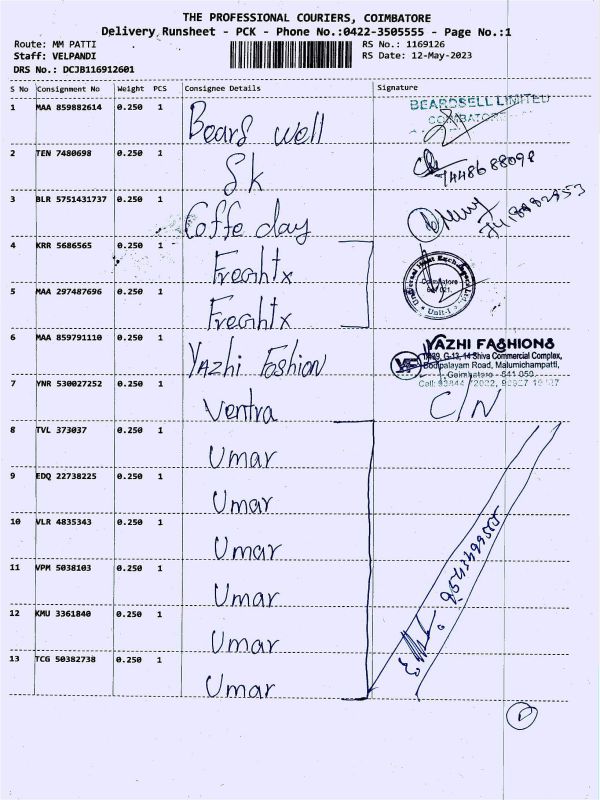 THE PROFESSIONAL COURIERS, COIMBATORE
Delivery Runsheet - PCK - Phone No.:0422-3505555 - Page No.:1
Route: MM PATTI RS No.: 1169126
Staff: VELPANDI RS Date: 12-May-2023
DRS No.: DCJB116912601
S No Consignment No Weight PCS Consignee Details Signature
1 MAA 859882614 0.250 1 BEARDSELL LIMITED
COIMBATORE
Beard well
2 TEN 7480698 0.250 1
Sk 7448688098
3 BLR 5751431737 0.250 1
Coffe day
4 KRR 5686565 0.250 1
Freghtx
5 MAA 297487696 0.250 1 Unit-I
Freghtx
6 MAA 859791110 0.250 1 YAZHI FASHIONS
G-13, 14 Shiva Commercial Complex,
Yazhi Fashion Bodipalayam Road, Malumichampatti,
Coimbatore - 641 050
7 YNR 530027252 0.250 1
Ventra C/N
8 TVL 373037 0.250 1
Umar
9 EDQ 22738225 0.250 1
Umar
10 VLR 4835343 0.250 1
Umar
11 VPM 5038103 0.250 1
Umar
12 KMU 3361840 0.250 1
Umar
13 TCG 50382738 0.250 1
Umar